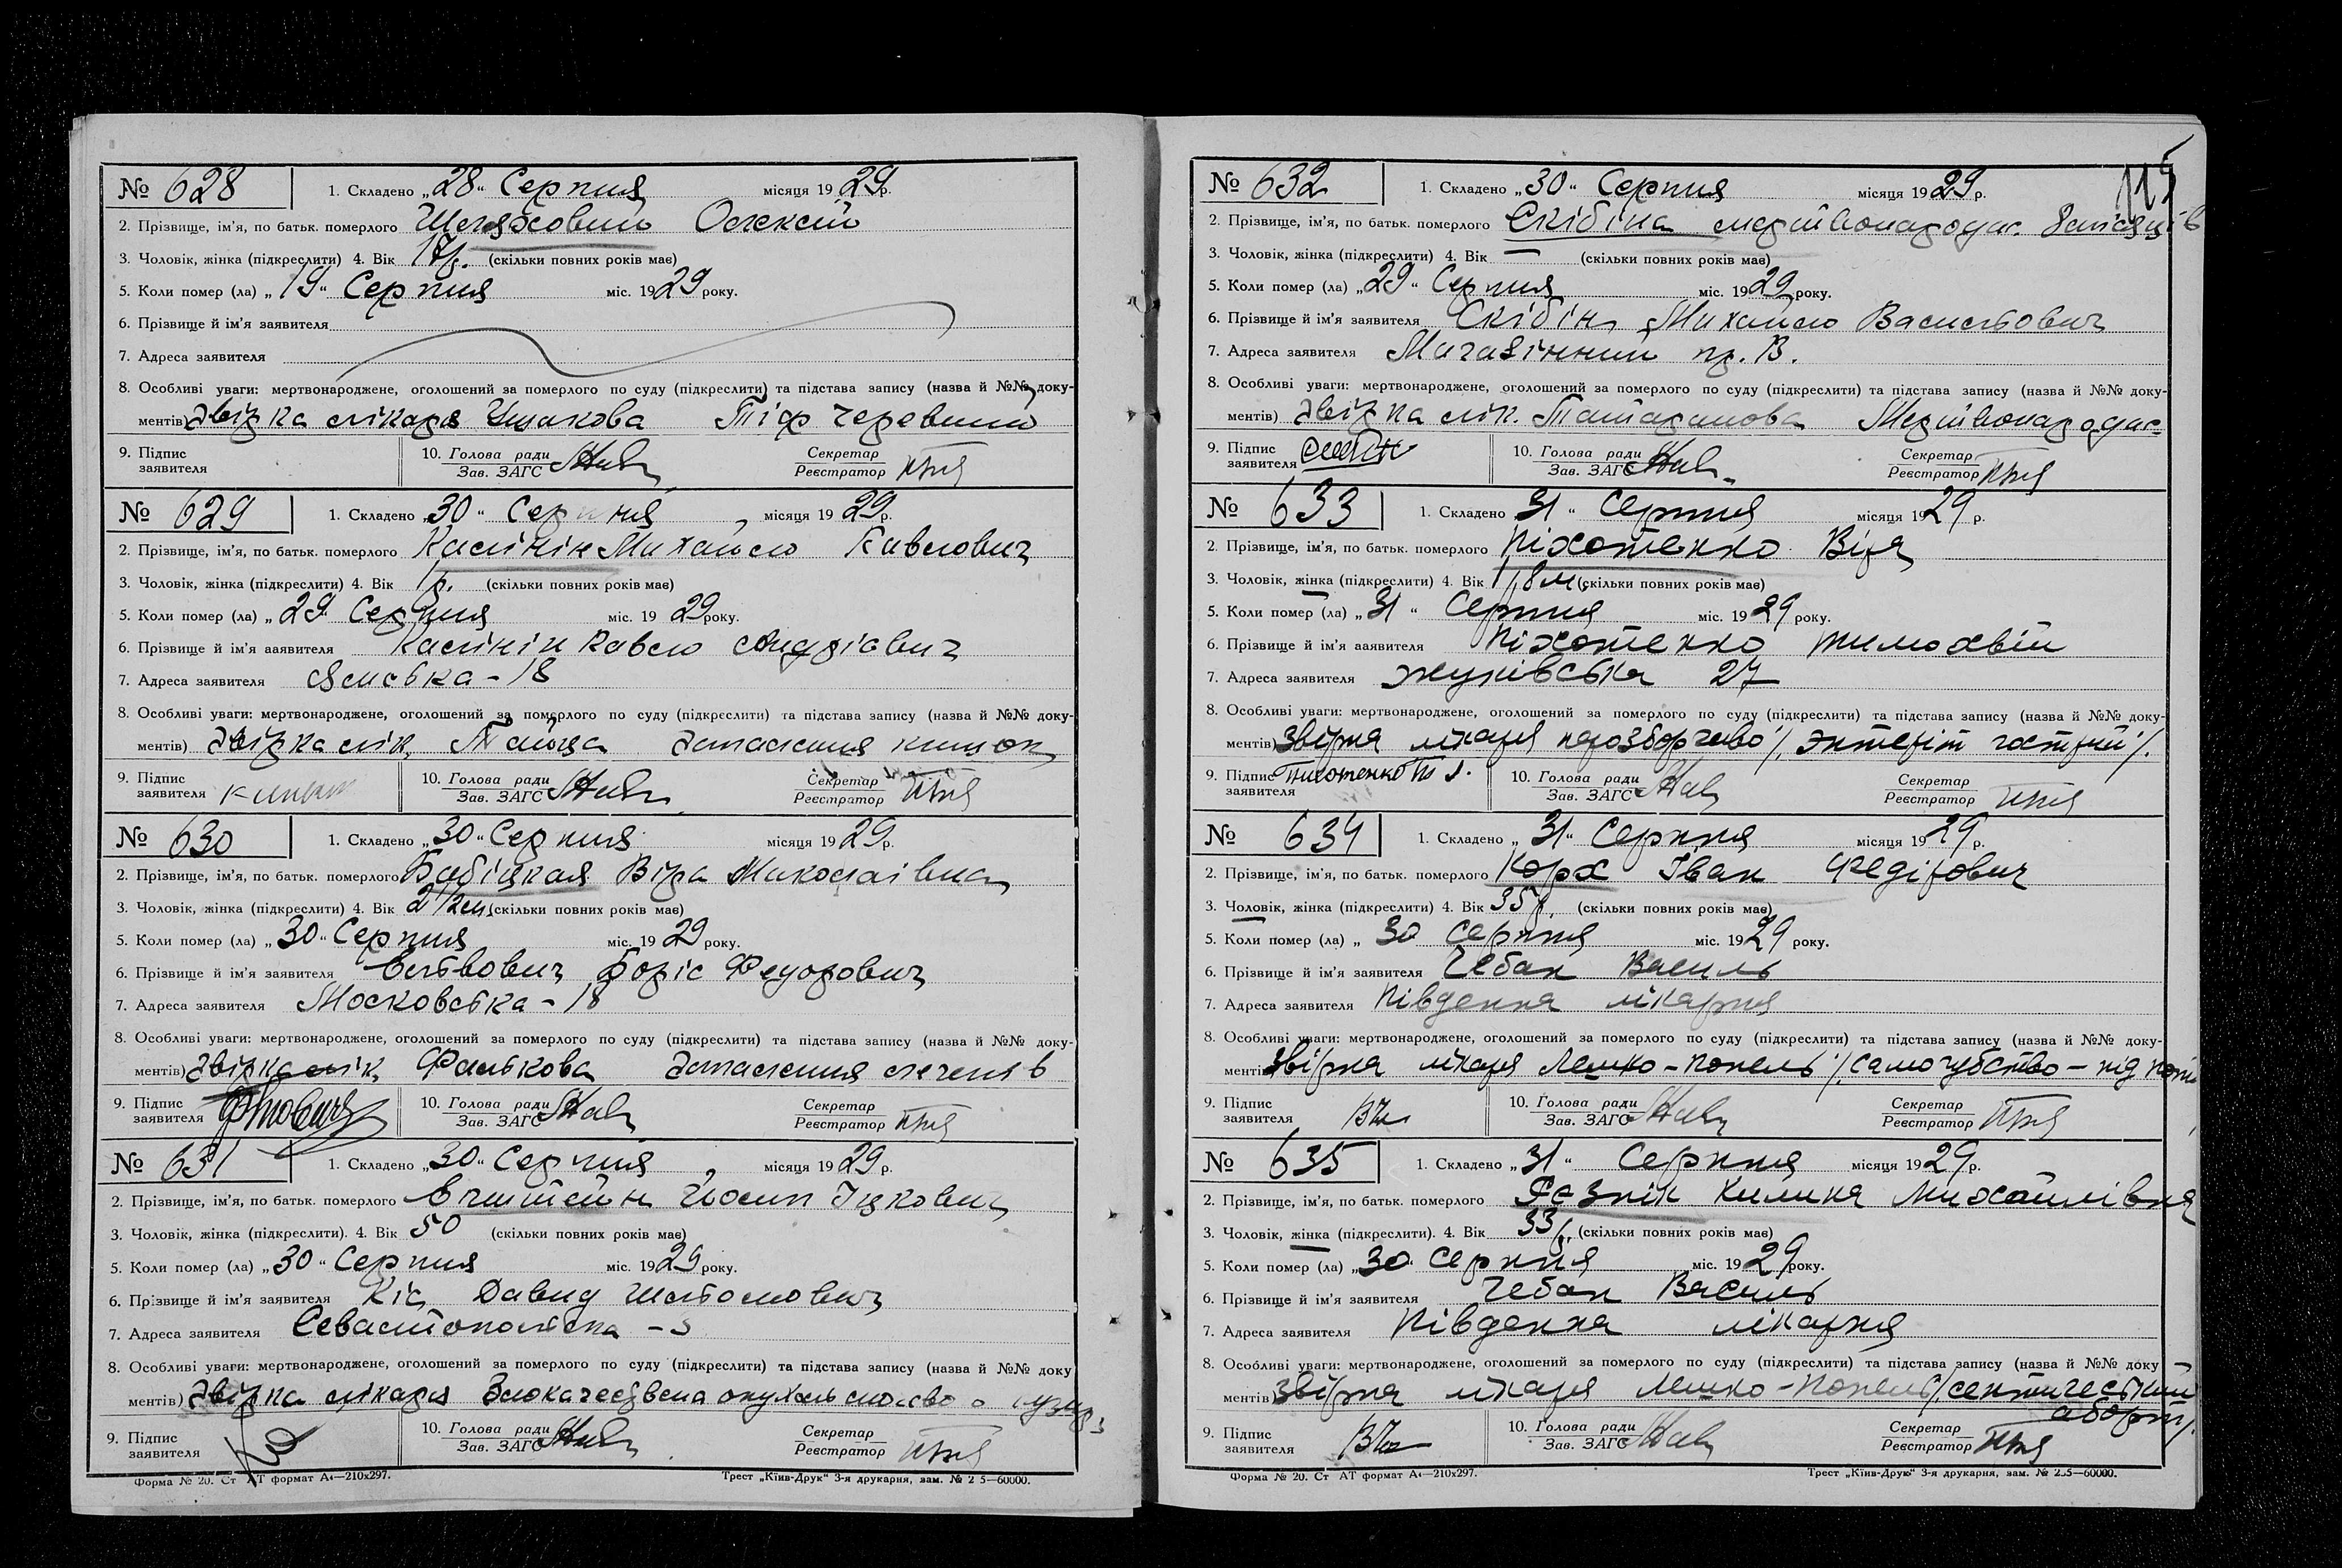 115
№ 628 1. Складено „28“ Серпня місяця 1929р.
2. Прізвище, ім'я, по батьк. померлого Шляховий Олексій
3. Чоловік, жінка (підкреслити) 4. Вік 17р. (скільки повних років має)
5. Коли помер (ла) „19“ Серпня міс. 1929 року.
6. Прізвище й ім'я заявителя
7. Адреса заявителя
8. Особливі уваги: мертвонароджене, оголошений за померлого по суду (підкреслити) та підстава запису (назва й №№ доку-
ментів) Звідка лікаря Ушакова Тіф черевний
9. Підпис заявителя 10. Голова ради Зав. ЗАГС Секретар Реєстратор
№ 629 1. Складено „30“ Серпня місяця 1929р.
2. Прізвище, ім'я, по батьк. померлого Калінін Михайло Павлович
3. Чоловік, жінка (підкреслити) 4. Вік 1р. (скільки повних років має)
5. Коли помер (ла) „29 Серпня міс. 1929року.
6. Прізвище й ім'я заявителя Калінін Павло Андріевич
7. Адреса заявителя - 18
8. Особливі уваги: мертвонароджене, оголошений за померлого по суду (підкреслити) та підстава запису (назва й №№ доку-
ментів) Звідка лік. Запалення кишок
9. Підпис заявителя 10. Голова ради Зав. ЗАГС Секретар Реєстратор
№ 630 1. Складено „30“ Серпня місяця 1929р.
2. Прізвище, ім'я, по батьк. померлого Бабіцкая Віра Миколаівна
3. Чоловік, жінка (підкреслити) 4. Вік (скільки повних років має)
5. Коли помер (ла) „30“ Серпня міс. 1929року.
6. Прізвище й ім'я заявителя Боріс Федорович
7. Адреса заявителя Московська - 18
8. Особливі уваги: мертвонароджене, оголошений за померлого по суду (підкреслити) та підстава запису (назва й №№ доку-
ментів) Звідка лік. Фалькова Запалення легенів
9. Підпис заявителя 10. Голова ради Зав. ЗАГС Секретар Реєстратор
№ 631 1. Складено „30“ Серпня місяця 1929р.
2. Прізвище, ім'я, по батьк. померлого Йосип Іцкович
3. Чоловік, жінка (підкреслити). 4. Вік 50 (скільки повних років має)
5. Коли помер (ла) „30“ Серпня міс. 1929року.
6. Прізвище й ім'я заявителя Кіс Давид Шльомович
7. Адреса заявителя Севастопольска - 5
8. Особливі уваги: мертвонароджене, оголошений за померлого по суду (підкреслити) та підстава запису (назва й №№ доку
ментів) Звідка лікаря Злокачествена опухоль мочевого пузиря
9. Підпис заявителя 10. Голова ради Зав. ЗАГС Секретар Реєстратор
Форма № 20. Ст АТ формат А4—210х297. Трест „Київ-Друк“ 3-я друкарня, зам. № 2 5—60000.
№ 632 1. Складено „30“ Серпня місяця 1929р.
2. Прізвище, ім'я, по батьк. померлого Скібіна мертвонародж. 8 місяців
3. Чоловік, жінка (підкреслити) 4. Вік — (скільки повних років має)
5. Коли помер (ла) „29“ Серпня міс. 1929року.
6. Прізвище й ім'я заявителя Скібін Михайло Васильович
7. Адреса заявителя Магазінний пр. В.
8. Особливі уваги: мертвонароджене, оголошений за померлого по суду (підкреслити) та підстава запису (назва й №№ доку-
ментів) Звідка лік. Мертвонародж
9. Підпис заявителя 10. Голова ради Зав. ЗАГС Секретар Реєстратор
№ 633 1. Складено 31 Серпня місяця 1929 р.
2. Прізвище, ім'я, по батьк. померлого Піхотенко Віра
3. Чоловік, жінка (підкреслити) 4. Вік (скільки повних років має)
5. Коли помер (ла) „31“ Серпня міс. 1929 року.
6. Прізвище й ім'я заявителя Піхотенко Тимохвій
7. Адреса заявителя Жуківська 27
8. Особливі уваги: мертвонароджене, оголошений за померлого по суду (підкреслити) та підстава запису (назва й №№ доку-
ментів) Звірка лікаря нерозборчево /Энтеріт гострий/.
9. Підпис заявителя Пихотенко Т 10. Голова ради Зав. ЗАГС Секретар Реєстратор
№ 634 1. Складено „31“ Серпня місяця 1929 р.
2. Прізвище, ім'я, по батьк. померлого Корх Іван Федірович
3. Чоловік, жінка (підкреслити) 4. Вік 35р. (скільки повних років має)
5. Коли помер (ла) „ 30 Серпня міс. 1929 року.
6. Прізвище й ім'я заявителя Чебан Василь
7. Адреса заявителя Південна лікарня
8. Особливі уваги: мертвонароджене, оголошений за померлого по суду (підкреслити) та підстава запису (назва й №№ доку-
ментів) Звірка лікаря Лешко-Попель /самогубство – під
9. Підпис заявителя 10. Голова ради Зав. ЗАГС Секретар Реєстратор
№ 635 1. Складено „31“ Серпня місяця 1929р.
2. Прізвище, ім'я, по батьк. померлого Рєзнік Килина Михайлівна
3. Чоловік, жінка (підкреслити). 4. Вік 33р. (скільки повних років має)
5. Коли помер (ла) „30“ Серпня міс. 1929року.
6. Прізвище й ім'я заявителя Чебан Василь
7. Адреса заявителя Південна лікарня
8. Особливі уваги: мертвонароджене, оголошений за померлого по суду (підкреслити) та підстава запису (назва й №№ доку
ментів) Звірка лікаря Лешко-Попель /септический
аборт/.
9. Підпис заявителя 10. Голова ради Зав. ЗАГС Секретар Реєстратор
Форма № 20. Ст АТ формат А4—210х297. Трест „Київ-Друк“ 3-я друкарня, зам. № 235—60000.